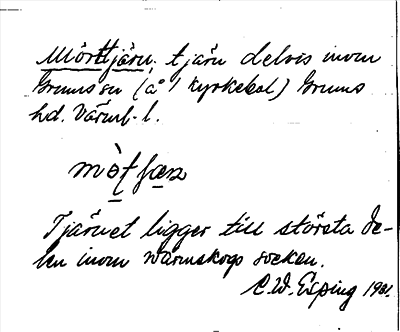 Mörttjärn. tjärn delvis inom
Grums sn (å 1 kyrkekol) Grums
hd. Värml. l.
mòtfæṇ
Tjärnet ligger till största de-
len inom Värmskogs socken.
C.W. Esping 1931.